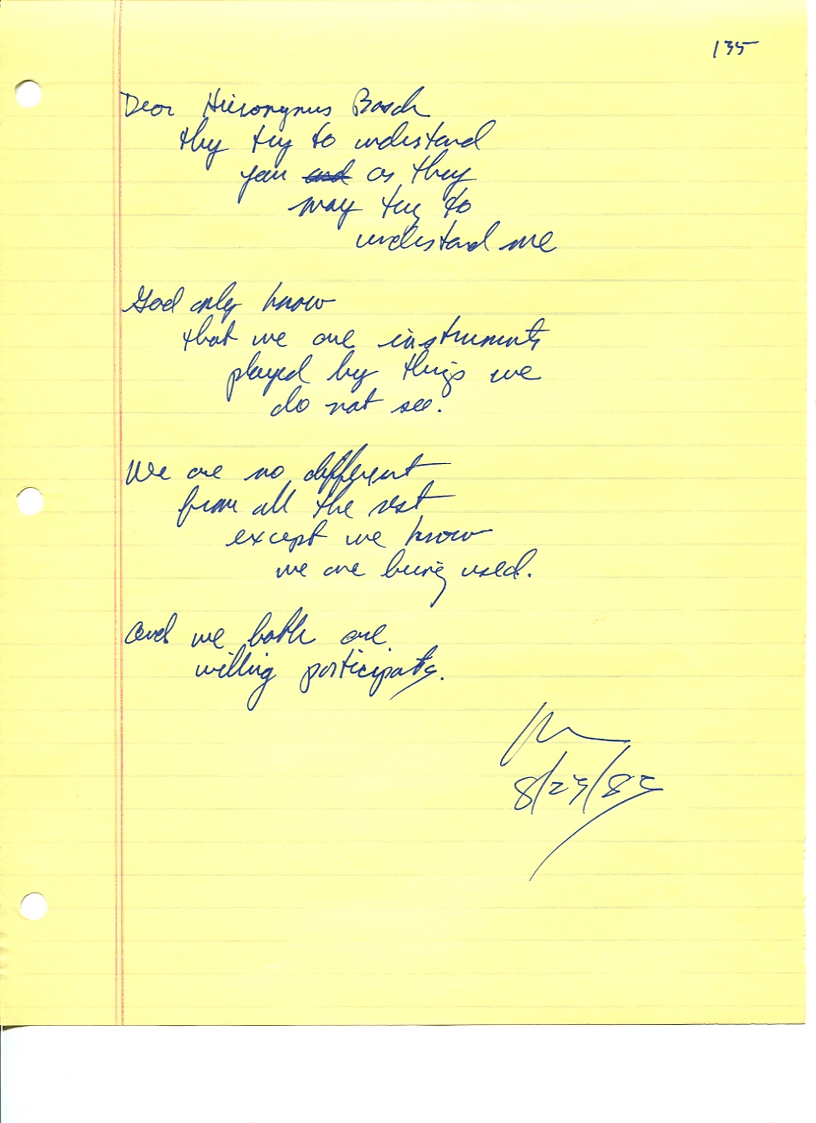 135
Dear Hieronymus Bosch
they try to understand
you and as they
may try to
understand me
God only know
that we are instruments
played by things we
do not see.
We are no different
from all the rest
except we know
we are being used.
and we both are
willing participants.